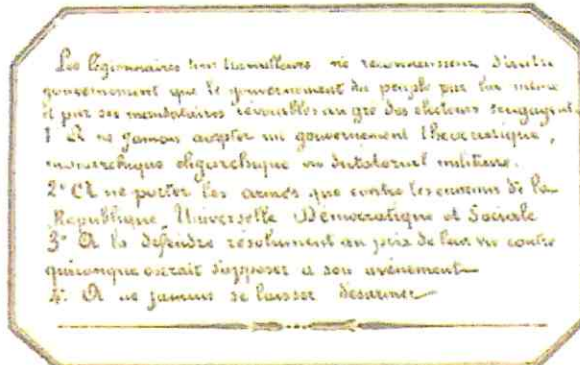 Les légionnaires tous travailleurs ne reconnaissent d'autre
gouvernement que le gouvernement du peuple par lui même
et par ses mandataires révocables au gré des électeurs s'engagent
1° A ne jamais accepter un gouvernement théocratique,
monarchique oligarchique ou dictatorial militaire.
2° A ne porter les armes que contre les ennemis de la
République Universelle Démocratique et Sociale
3° A la défendre résolument au prix de leur vie contre
quiconque oserait s'opposer a son avènement
4° A ne jamais se laisser désarmer